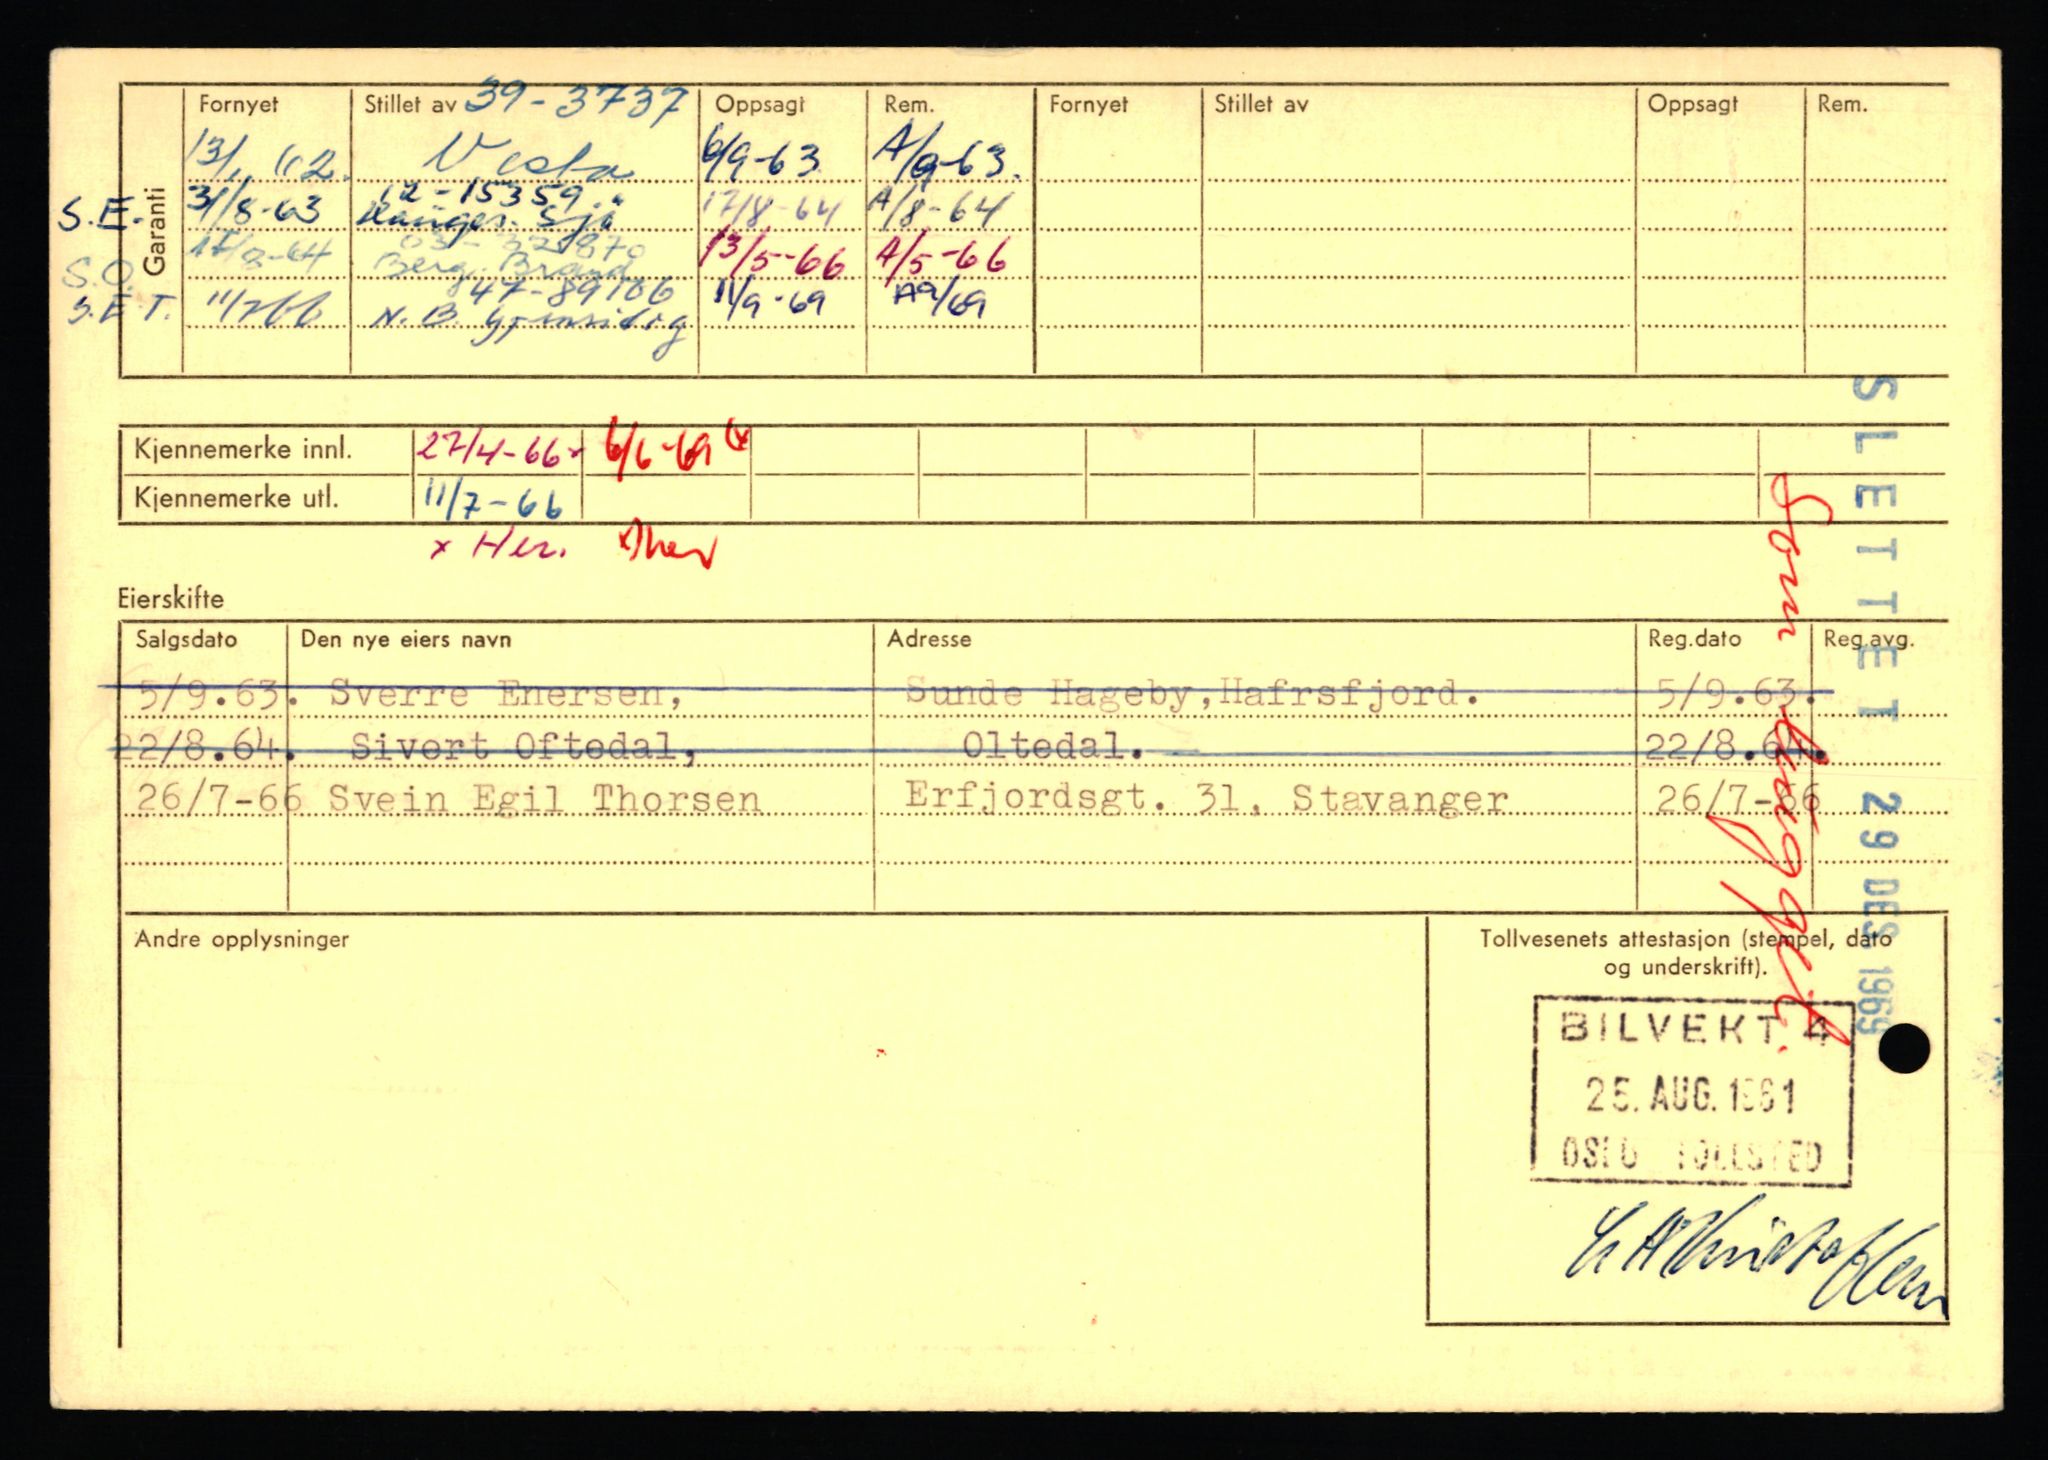 Fornyet Stillet av 39-3737 Oppsagt Rem. Fornyet Stillet av Oppsagt Rem.
Garanti
Vesta 6/9-63 A/9-63.
12-15359
S.E. 31/8-63 Sjø 17/8-64 A/8-64
03-32870
S.O. Berg. Brand 13/5-66 A/5-66
847-89106
S.E.T. 11/7 66 N.B. Gjensidig 11/9-69 A9/69
Kjennemerke innl. 27/4-66x 6/6-69
Kjennemerke utl. 11/7-66
x Her.
Eierskifte
Salgsdato Den nye eiers navn Adresse Reg.dato Reg.avg.
5/9.63. Sverre Enersen, Sunde Hageby,Hafrsfjord. 5/9.63.
22/8.64. Sivert Oftedal, Oltedal. 22/8.64.
26/7-66 Svein Egil Thorsen Erfjordsgt. 31, Stavanger 26/7-66
SLETTET 29 DES. 1969
Som hugget.
Andre opplysninger
Tollvesenets attestasjon (stempel, dato
og underskrift).
BILVEKT 4
25. AUG. 1961
OSLO TOLLSTED